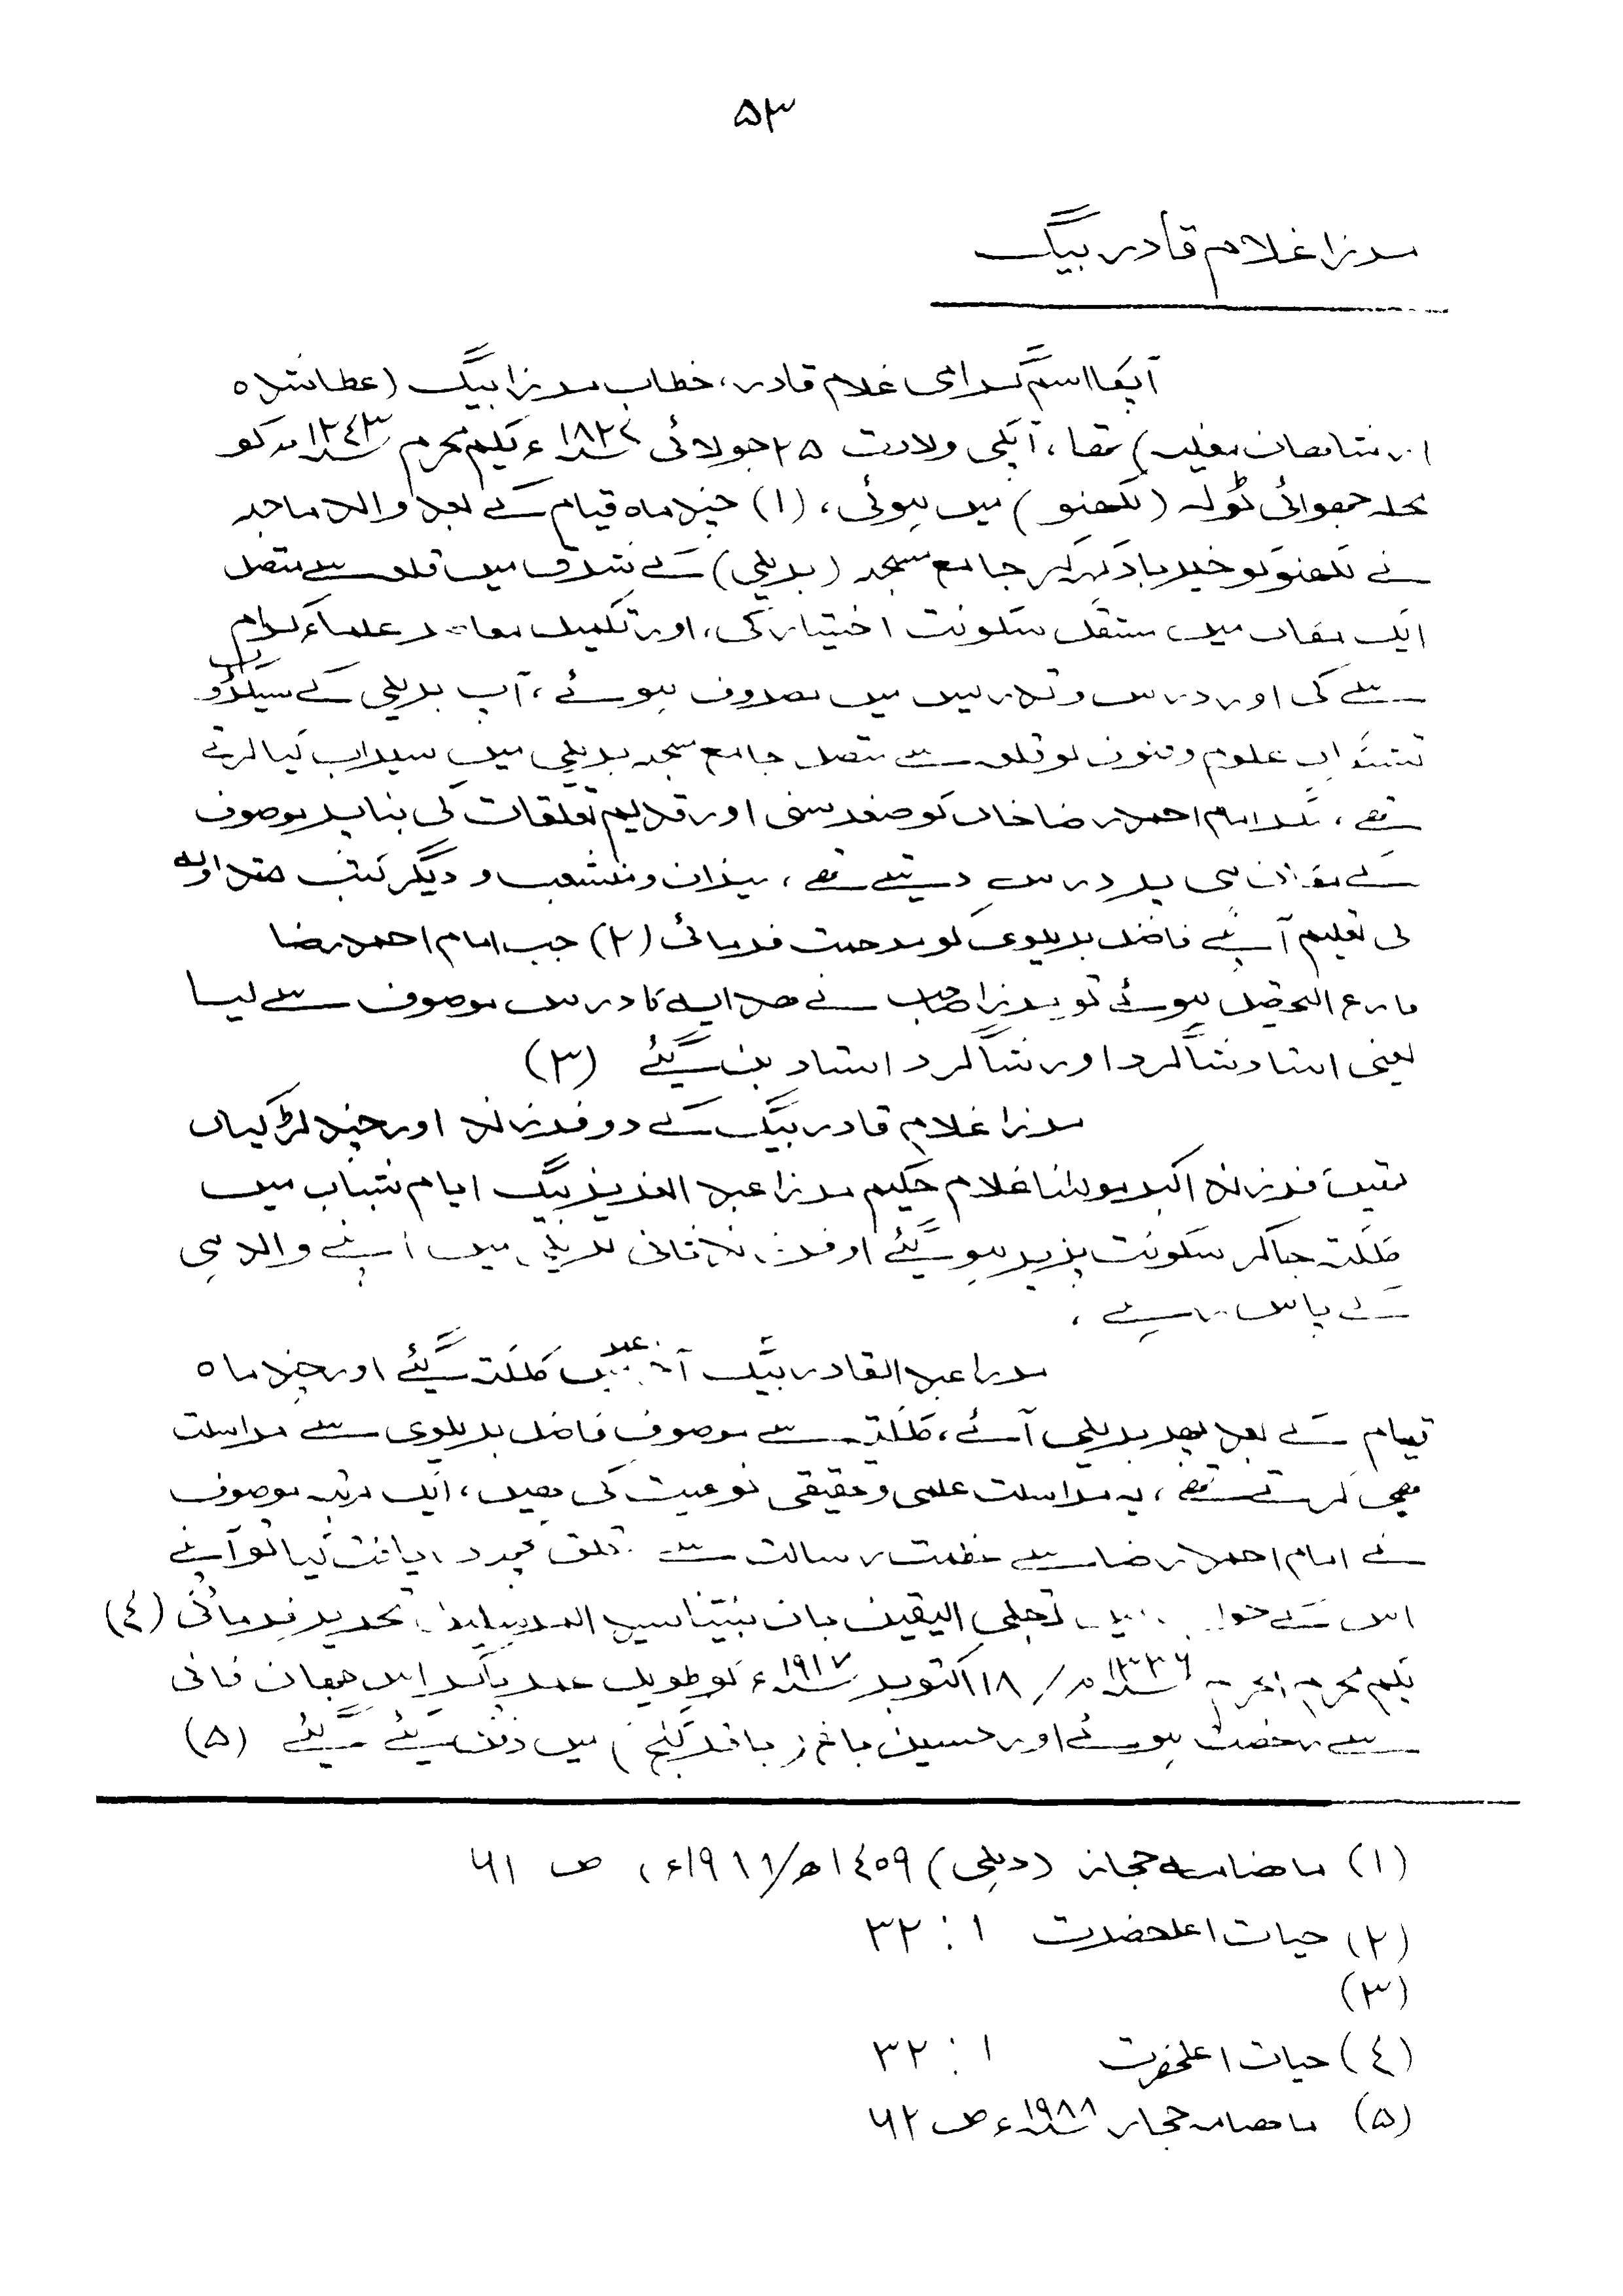 ۵۳
مرزا غلام قادر بیگ
آپکا اسم گرامی غلام قادر، خطاب مرزا بیگ (عطا شدہ
از شاہان مغلیہ) تھا، آپکی ولادت ۲۵ جولائی ۱۸۲۷ء یکم محرم ۱۲٤۳ھ کو
محلہ جھوائی ٹولہ (لکھنو) میں ہوئی، (۱) چند ماہ قیام کے بعد والد ماجد
نے لکھنو کو خیرباد کہہ کر جامع مسجد (بریلی) کے شرق میں قلعہ سے متصل
ایک مکان میں مستقل سکونت اختیار کی، اور تکمیل علماء کرام
سے کی اور درس و تدریس میں مصروف ہوئے، آپ بریلی کے سیکڑوں
تشنگان علوم و فنون کو قلعہ سے متصل جامع مسجد بریلی میں سیراب کیا کرتے
تھے، مگر امام احمد رضا خاں کو صغر سنی اور قدیم تعلقات کی بنا پر موصوف
کے مکان ہی پر درس دیتے تھے، میزان و منشعب و دیگر کتب متداولہ
کی تعلیم آپنے فاضل بریلوی کو مرحمت فرمائی (۲) جب امام احمد رضا
فارغ التحصیل ہوئے تو مرزا صاحب نے ھدایہ کا درس موصوف سے لیا
یعنی استاد شاگرد اور شاگرد استاد بن گئے (۳)
مرزا غلام قادر بیگ کے دو فرزند اور چند لڑکیاں
تھیں فرزند اکبر مولانا غلام حکیم مرزا عبد العزیز بیگ ایام شباب میں
کلکتہ جاکر سکونت پذیر ہو گئے اور فرزند ثانی بریلی میں اپنے والد ہی
کے پاس رہے،
مرزا عبد القادر بیگ کلکتہ گئے اور چند ماہ
قیام کے بعد پھر بریلی آئے، کلکتہ سے موصوف فاضل بریلوی سے مراسلت
بھی کرتے تھے، یہ مراسلت علمی و تحقیقی نوعیت کی تھیں، ایک مرتبہ موصوف
نے امام احمد رضا سے عظمت رسالت سے متعلق کچھ دریافت کیا تو آپنے
اس کے جواب میں تجلی الیقین بان نبینا سید المرسلین تحریر فرمائی (٤)
یکم محرم الحرام ۱۳۳۶ھ/ ۱۸ اکتوبر ۱۹۱۷ء کو طویل عمر پاکر اس جہان فانی
سے رخصت ہوئے اور حسین باغ (باقر گنج) میں دفن کئے گئے (۵)
(۱) ماھنامہ حجاز (دہلی) ۱٤۰۹ھ/۱۹۸۸ء، ص ۶۱
(۲) حیات اعلحضرت ۱ : ۳۲
(۳)
(٤) حیات اعلحضرت ۱ : ۳۲
(۵) ماھنامہ حجاز ۱۹۸۸ء ص ۶۲